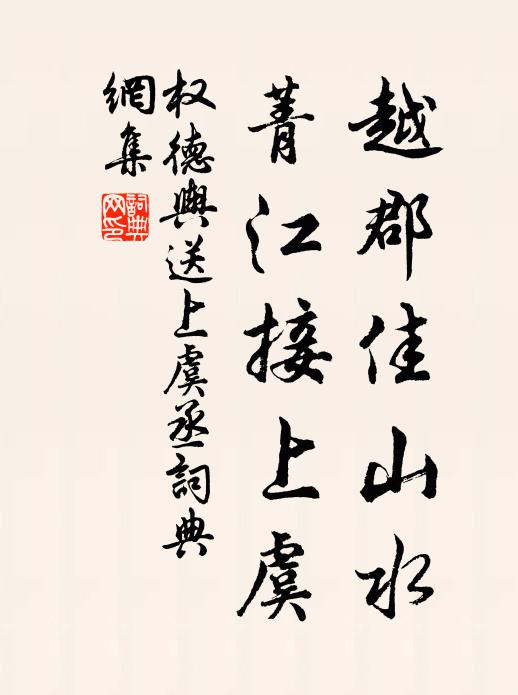 越郡佳山水
菁江接上虞
权德輿送上虞丞詞典
網集
詞典網印